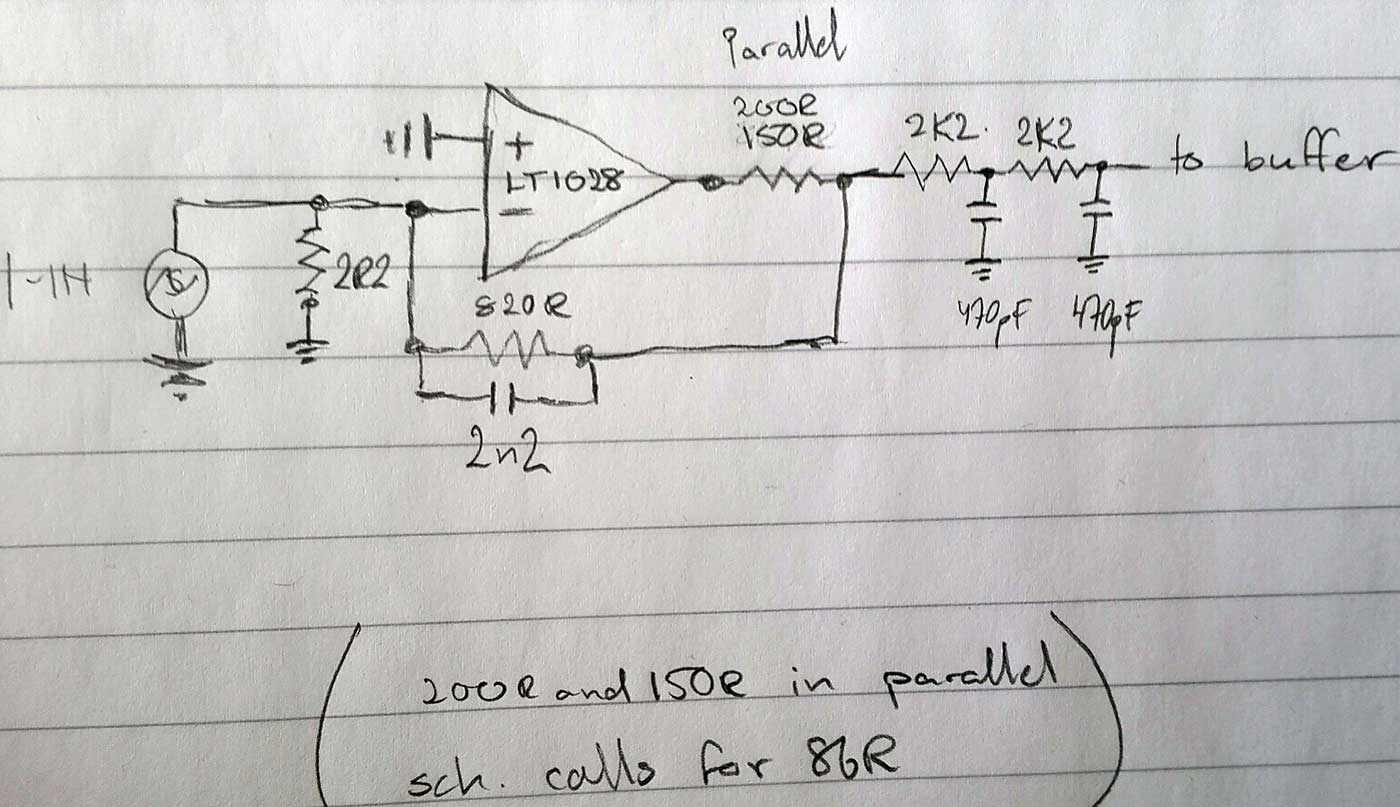 Parallel
200R
150R
2K2. 2K2
to buffer
+
LT1028
-
2R2
820R
470pF 470pF
2n2
200R and 150R in parallel
sch. calls for 86R